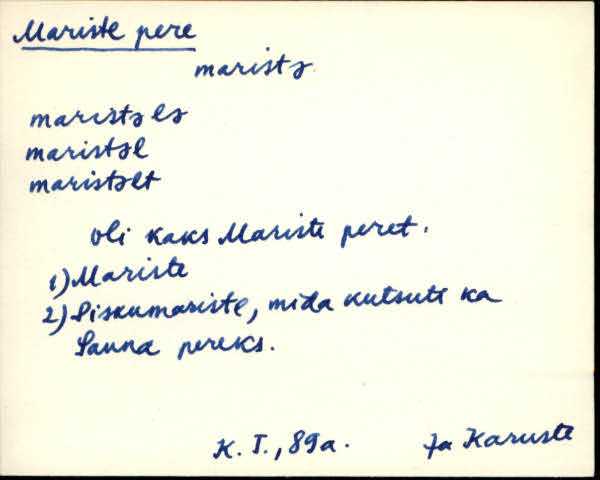 Mariste pere
maristə
maristələ
maristəl
maristəlt
oli kaks Mariste peret.
1) Mariste
2) Siskumariste, mida kutsuti ka
Sauna pereks.
K. T., 89a. Ja Karuste